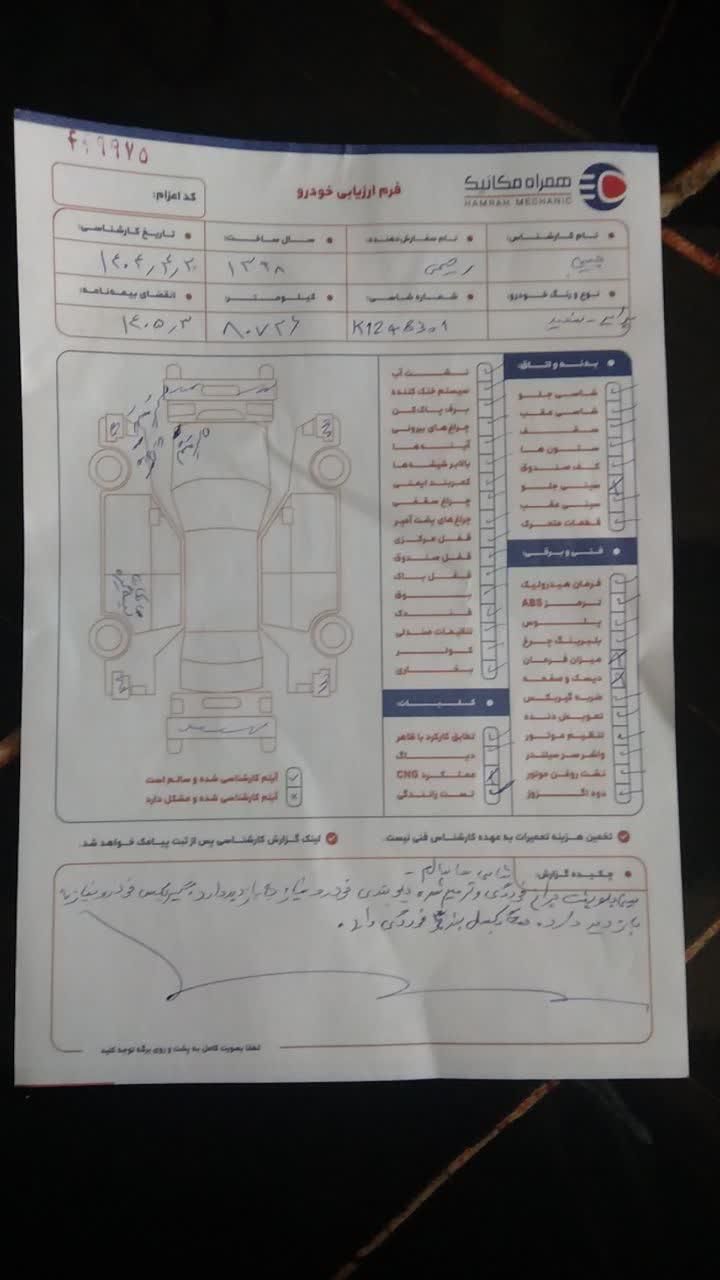 ۴۰۹۹۷۵
همراه مکانیک
HAMRAH MECHANIC
فرم ارزیابی خودرو
کد اعزام:
نام کارشناس: نام سفارش‌دهنده: سال ساخت: تاریخ کارشناسی:
رحیمی ۱۳۹۸
نوع و رنگ خودرو: شماره شاسی: کیلومتر: انقضای بیمه‌نامه:
سفید ۸۰۷۲۶ ۱۴۰۵
بدنه و اتاق:
شاسی جلو
شاسی عقب
سقف
ستون ها
کف صندوق
سینی جلو
سینی عقب
قطعات متحرک
فنی و برقی:
فرمان هیدرولیک
ترمز ABS
پلوس
بلبرینگ چرخ
میزان فرمان
دیسک و صفحه
ضربه گیربکس
تعویض دنده
تنظیم موتور
واشر سر سیلندر
نشت روغن موتور
دود اگزوز
نشت آب
سیستم خنک کننده
برف پاک کن
چراغ های بیرونی
آینه ها
بالابر شیشه ها
کمربند ایمنی
چراغ سقفی
چراغ های پشت آمپر
قفل مرکزی
قفل صندوق
قفل باک
بوق
فندک
تنظیمات صندلی
کولر
بخاری
کیفیات:
تطابق کارکرد با ظاهر
دیاگ
عملکرد CNG
تست رانندگی
آیتم کارشناسی شده و سالم است
آیتم کارشناسی شده و مشکل دارد
تخمین هزینه تعمیرات به عهده کارشناس فنی نیست.
لینک گزارش کارشناسی پس از ثبت پیامک خواهد شد.
چکیده گزارش:
خوردگی و ترمیم شده خودرو نیاز به بازدید دارد گیربکس خودرو نیاز به
بازدید دارد. خوردگی دارد.
لطفا بصورت کامل به پشت و روی برگه توجه کنید